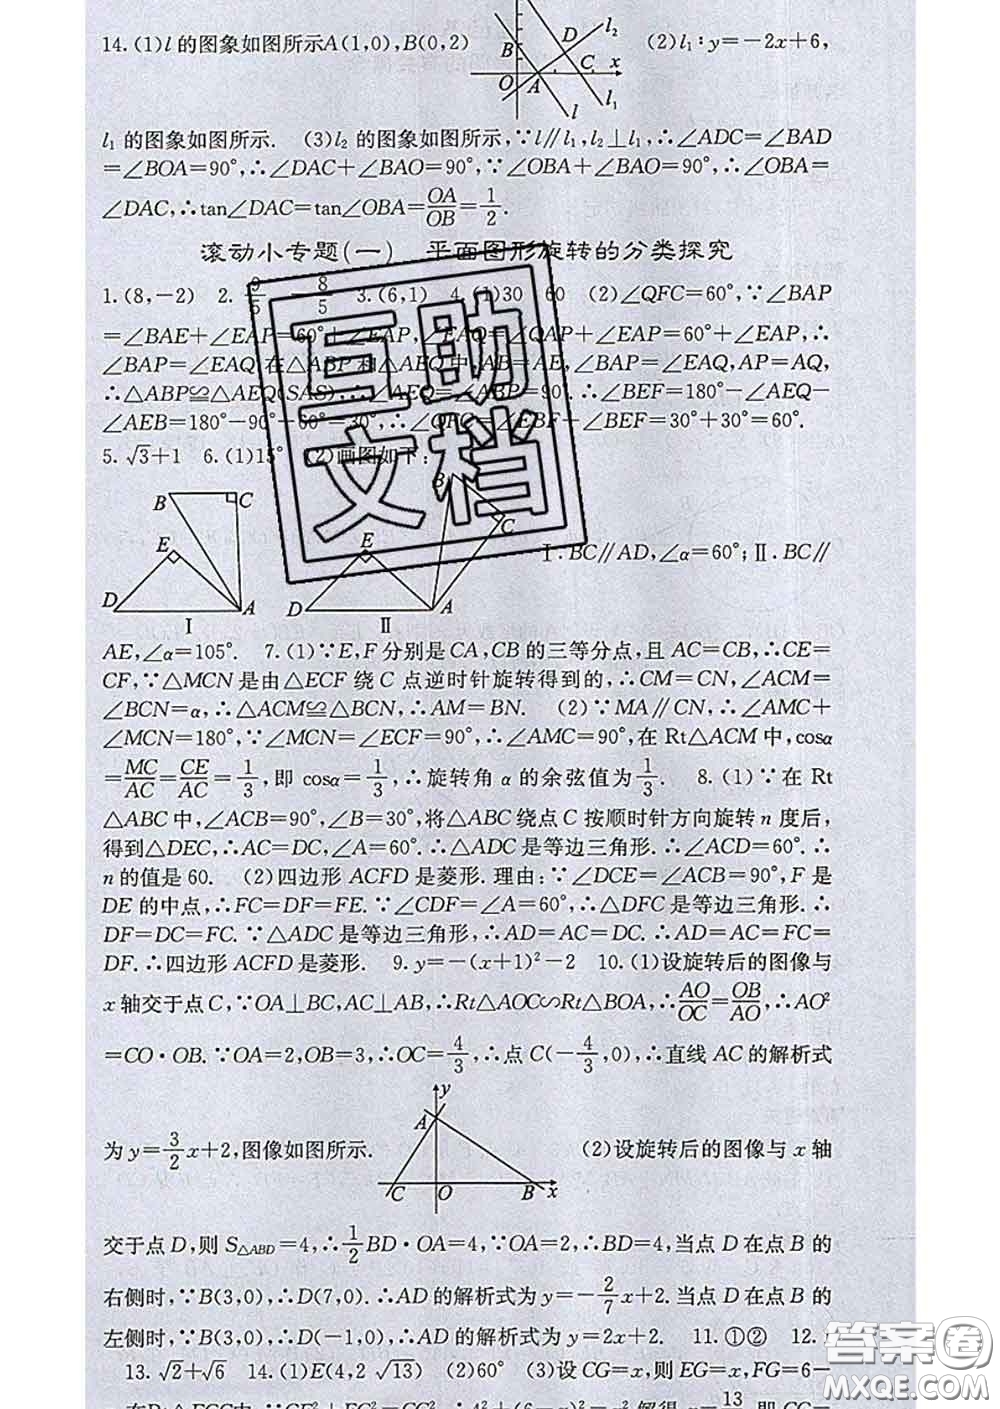 14.(1)l的图象如图所示A(1,0),B(0,2) (2)l₁:y=-2x+6,
B D l₂ O A C x l l₁
l₁的图象如图所示. (3)l₂的图象如图所示,∵l∥l₁,l₂⊥l₁,∴∠ADC=∠BAD
=∠BOA=90°,∴∠DAC+∠BAO=90°,∵∠OBA+∠BAO=90°,∴∠OBA=
∠DAC,∴tan∠DAC=tan∠OBA=OA/OB=1/2.
滚动小专题(一) 平面图形旋转的分类探究
1.(8,-2) 2. 9/5 8/5 3.(6,1) 4.(1)30 60 (2)∠QFC=60°,∵∠BAP
=∠BAE+∠EAP=60°+∠EAP,∠EAQ=∠QAP+∠EAP=60°+∠EAP,∴
∠BAP=∠EAQ.在△ABP和△AEQ中,AB=AE,∠BAP=∠EAQ,AP=AQ,
∴△ABP≌△AEQ(SAS).∴∠AEQ=∠ABP=90°.∴∠BEF=180°-∠AEQ-
∠AEB=180°-90°-60°=30°,∴∠QFC=∠EBF+∠BEF=30°+30°=60°.
5.√3+1 6.(1)15° (2)画图如下:
B C E D A Ⅰ
B C E D A Ⅱ
Ⅰ.BC∥AD,∠α=60°;Ⅱ.BC∥
AE,∠α=105°. 7.(1)∵E,F分别是CA,CB的三等分点,且AC=CB,∴CE=
CF,∵△MCN是由△ECF绕C点逆时针旋转得到的,∴CM=CN,∠ACM=
∠BCN=α,∴△ACM≌△BCN,∴AM=BN. (2)∵MA∥CN,∴∠AMC+
∠MCN=180°,∵∠MCN=∠ECF=90°,∴∠AMC=90°,在Rt△ACM中,cosα
=MC/AC=CE/AC=1/3,即cosα=1/3,∴旋转角α的余弦值为1/3. 8.(1)∵在Rt
△ABC中,∠ACB=90°,∠B=30°,将△ABC绕点C按顺时针方向旋转n度后,
得到△DEC,∴AC=DC,∠A=60°.∴△ADC是等边三角形.∴∠ACD=60°.∴
n的值是60. (2)四边形ACFD是菱形.理由:∵∠DCE=∠ACB=90°,F是
DE的中点,∴FC=DF=FE.∵∠CDF=∠A=60°,∴△DFC是等边三角形.∴
DF=DC=FC.∵△ADC是等边三角形,∴AD=AC=DC.∴AD=AC=FC=
DF.∴四边形ACFD是菱形. 9.y=-(x+1)²-2 10.(1)设旋转后的图像与
x轴交于点C,∵OA⊥BC,AC⊥AB,∴Rt△AOC∽Rt△BOA,∴AO/OC=OB/AO,∴AO²
=CO·OB.∵OA=2,OB=3,∴OC=4/3,∴点C(-4/3,0),∴直线AC的解析式
为y=3/2x+2,图像如图所示. (2)设旋转后的图像与x轴
y A C O B x
交于点D,则S△ABD=4,∴1/2BD·OA=4,∵OA=2,∴BD=4,当点D在点B的
右侧时,∵B(3,0),∴D(7,0).∴AD的解析式为y=-2/7x+2.当点D在点B的
左侧时,∵B(3,0),∴D(-1,0),∴AD的解析式为y=2x+2. 11.①② 12.
13.√2+√6 14.(1)E(4,2√13) (2)60° (3)设CG=x,则EG=x,FG=6-
互助文档
答案圈
MXQE.COM